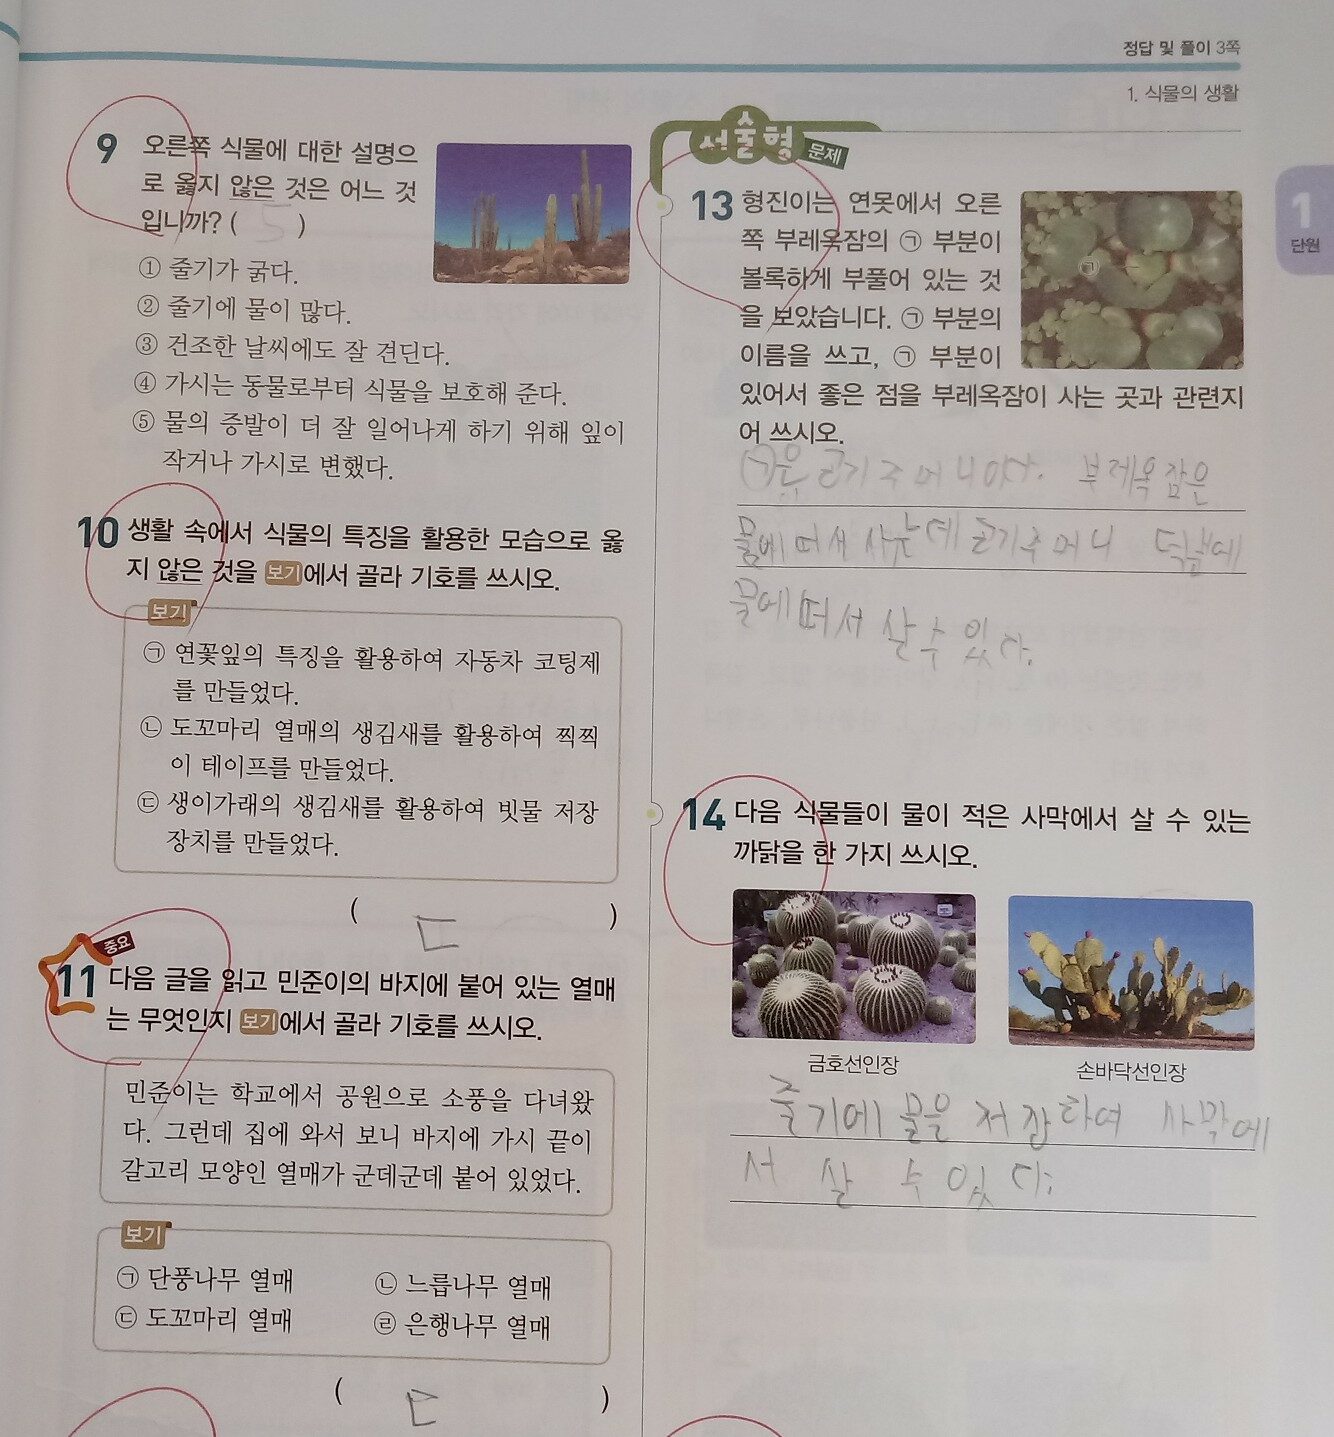 정답 및 풀이 3쪽
1. 식물의 생활
1
단원
9 오른쪽 식물에 대한 설명으
로 옳지 않은 것은 어느 것
입니까? ( 5 )
① 줄기가 굵다.
② 줄기에 물이 많다.
③ 건조한 날씨에도 잘 견딘다.
④ 가시는 동물로부터 식물을 보호해 준다.
⑤ 물의 증발이 더 잘 일어나게 하기 위해 잎이
작거나 가시로 변했다.
10 생활 속에서 식물의 특징을 활용한 모습으로 옳
지 않은 것을 보기에서 골라 기호를 쓰시오.
보기
㉠ 연꽃잎의 특징을 활용하여 자동차 코팅제
를 만들었다.
㉡ 도꼬마리 열매의 생김새를 활용하여 찍찍
이 테이프를 만들었다.
㉢ 생이가래의 생김새를 활용하여 빗물 저장
장치를 만들었다.
( ㄷ )
중요
11 다음 글을 읽고 민준이의 바지에 붙어 있는 열매
는 무엇인지 보기에서 골라 기호를 쓰시오.
민준이는 학교에서 공원으로 소풍을 다녀왔
다. 그런데 집에 와서 보니 바지에 가시 끝이
갈고리 모양인 열매가 군데군데 붙어 있었다.
보기
㉠ 단풍나무 열매 ㉡ 느릅나무 열매
㉢ 도꼬마리 열매 ㉣ 은행나무 열매
( ㄷ )
서술형 문제
13 형진이는 연못에서 오른
쪽 부레옥잠의 ㉠ 부분이
볼록하게 부풀어 있는 것
을 보았습니다. ㉠ 부분의
이름을 쓰고, ㉠ 부분이
있어서 좋은 점을 부레옥잠이 사는 곳과 관련지
어 쓰시오.
㉠
(ㄱ)은 공기주머니이다. 부레옥잠은
물에 떠서 사는데 공기주머니 덕분에
물에 떠서 살 수 있다.
14 다음 식물들이 물이 적은 사막에서 살 수 있는
까닭을 한 가지 쓰시오.
금호선인장 손바닥선인장
줄기에 물을 저장하여 사막에
서 살 수 있다.